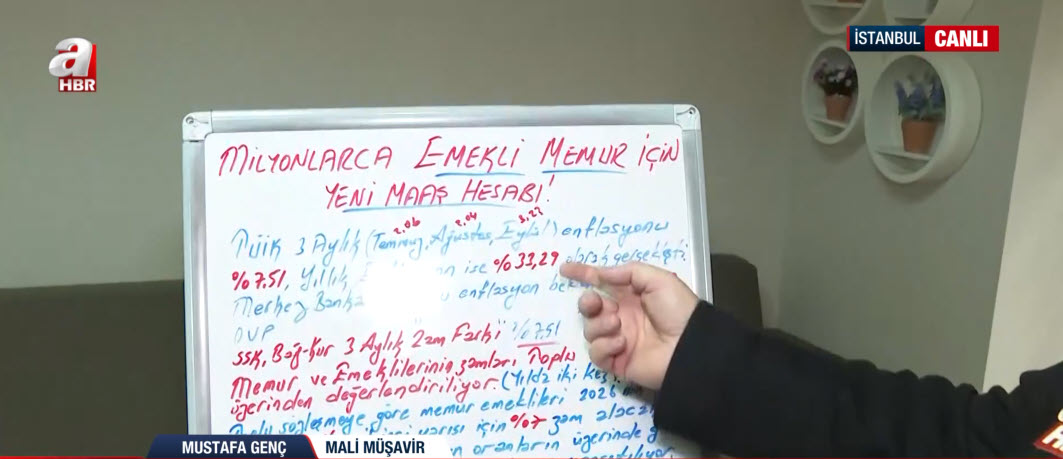 a
HBR
İSTANBUL CANLI
MİLYONLARCA EMEKLİ MEMUR İÇİN
YENİ MAAŞ HESABI!
2,06 2,04 3,23
TÜİK 3 Aylık (Temmuz, Ağustos, Eylül) enflasyonu
%7.51, Yıllık ise %33,29 olarak gerçekleşti.
Merkez enflasyon
OVP
SSK, Bağ-Kur 3 Aylık "Zam Farkı" %7.51
Memur ve Emeklilerinin zamları, Toplu
üzerinden değerlendiriliyor. (Yılda iki kez
sözleşmeye göre memur emeklileri 2026
yarısı için %7 zam alacak
oranların üzerinde
MUSTAFA GENÇ MALİ MÜŞAVİR